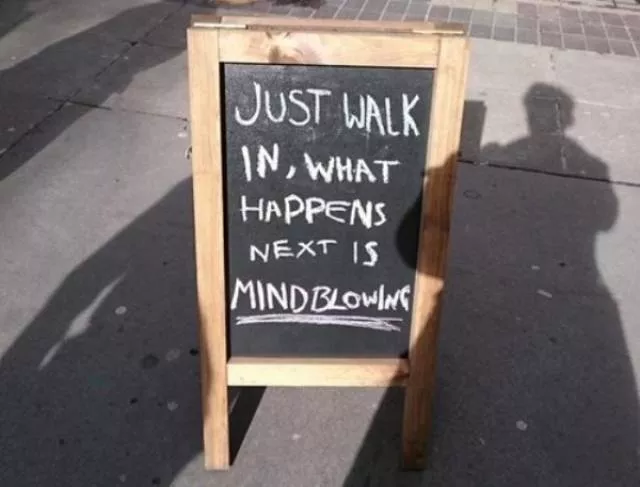 JUST WALK
IN, WHAT
HAPPENS
NEXT IS
MINDBLOWING